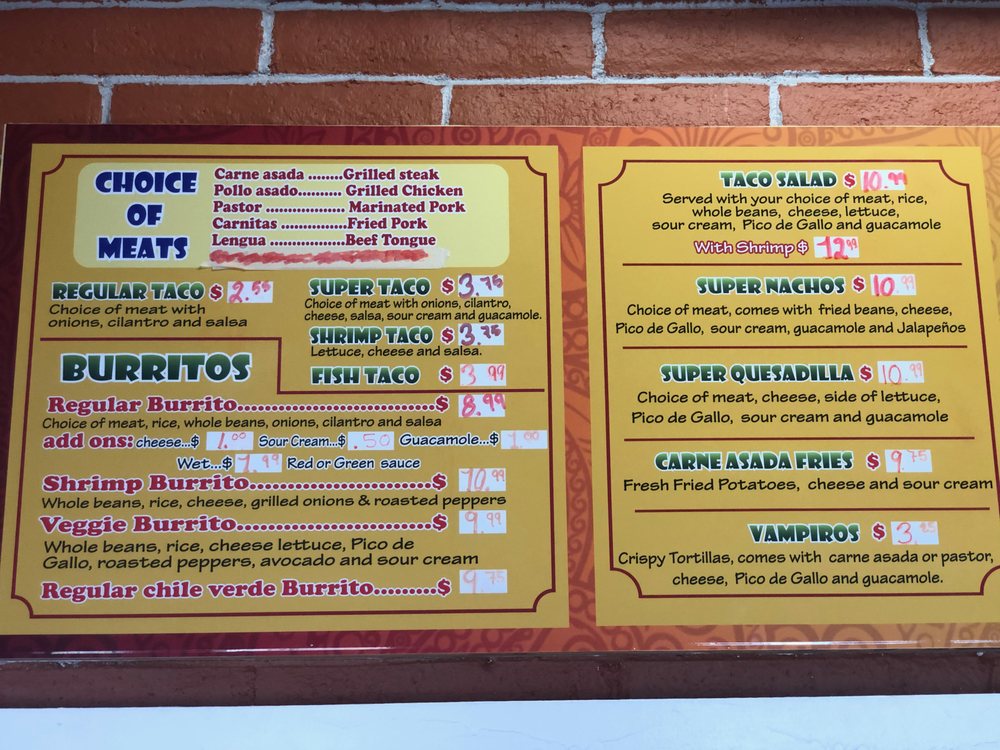 CHOICE
OF
MEATS
Carne asada ........Grilled steak
Pollo asado.......... Grilled Chicken
Pastor .................... Marinated Pork
Carnitas .................Fried Pork
Lengua ...................Beef Tongue
REGULAR TACO $ 2.55
Choice of meat with
onions, cilantro and salsa
SUPER TACO $ 3.75
Choice of meat with onions, cilantro,
cheese, salsa, sour cream and guacamole.
SHRIMP TACO $ 3.75
Lettuce, cheese and salsa.
FISH TACO $ 3.99
BURRITOS
Regular Burrito..............................$ 8.99
Choice of meat, rice, whole beans, onions, cilantro and salsa
add ons: cheese...$ 1.00 Sour Cream...$ .50 Guacamole...$ 1.00
Wet...$ 1.99 Red or Green sauce
Shrimp Burrito..............................$ 10.99
Whole beans, rice, cheese, grilled onions & roasted peppers
Veggie Burrito..............................$ 9.99
Whole beans, rice, cheese lettuce, Pico de
Gallo, roasted peppers, avocado and sour cream
Regular chile verde Burrito..........$ 9.75
TACO SALAD $ 10.99
Served with your choice of meat, rice,
whole beans, cheese, lettuce,
sour cream, Pico de Gallo and guacamole
With Shrimp $ 12.99
SUPER NACHOS $ 10.99
Choice of meat, comes with fried beans, cheese,
Pico de Gallo, sour cream, guacamole and Jalapeños
SUPER QUESADILLA $ 10.99
Choice of meat, cheese, side of lettuce,
Pico de Gallo, sour cream and guacamole
CARNE ASADA FRIES $ 9.75
Fresh Fried Potatoes, cheese and sour cream
VAMPIROS $
Crispy Tortillas, comes with carne asada or pastor,
cheese, Pico de Gallo and guacamole.